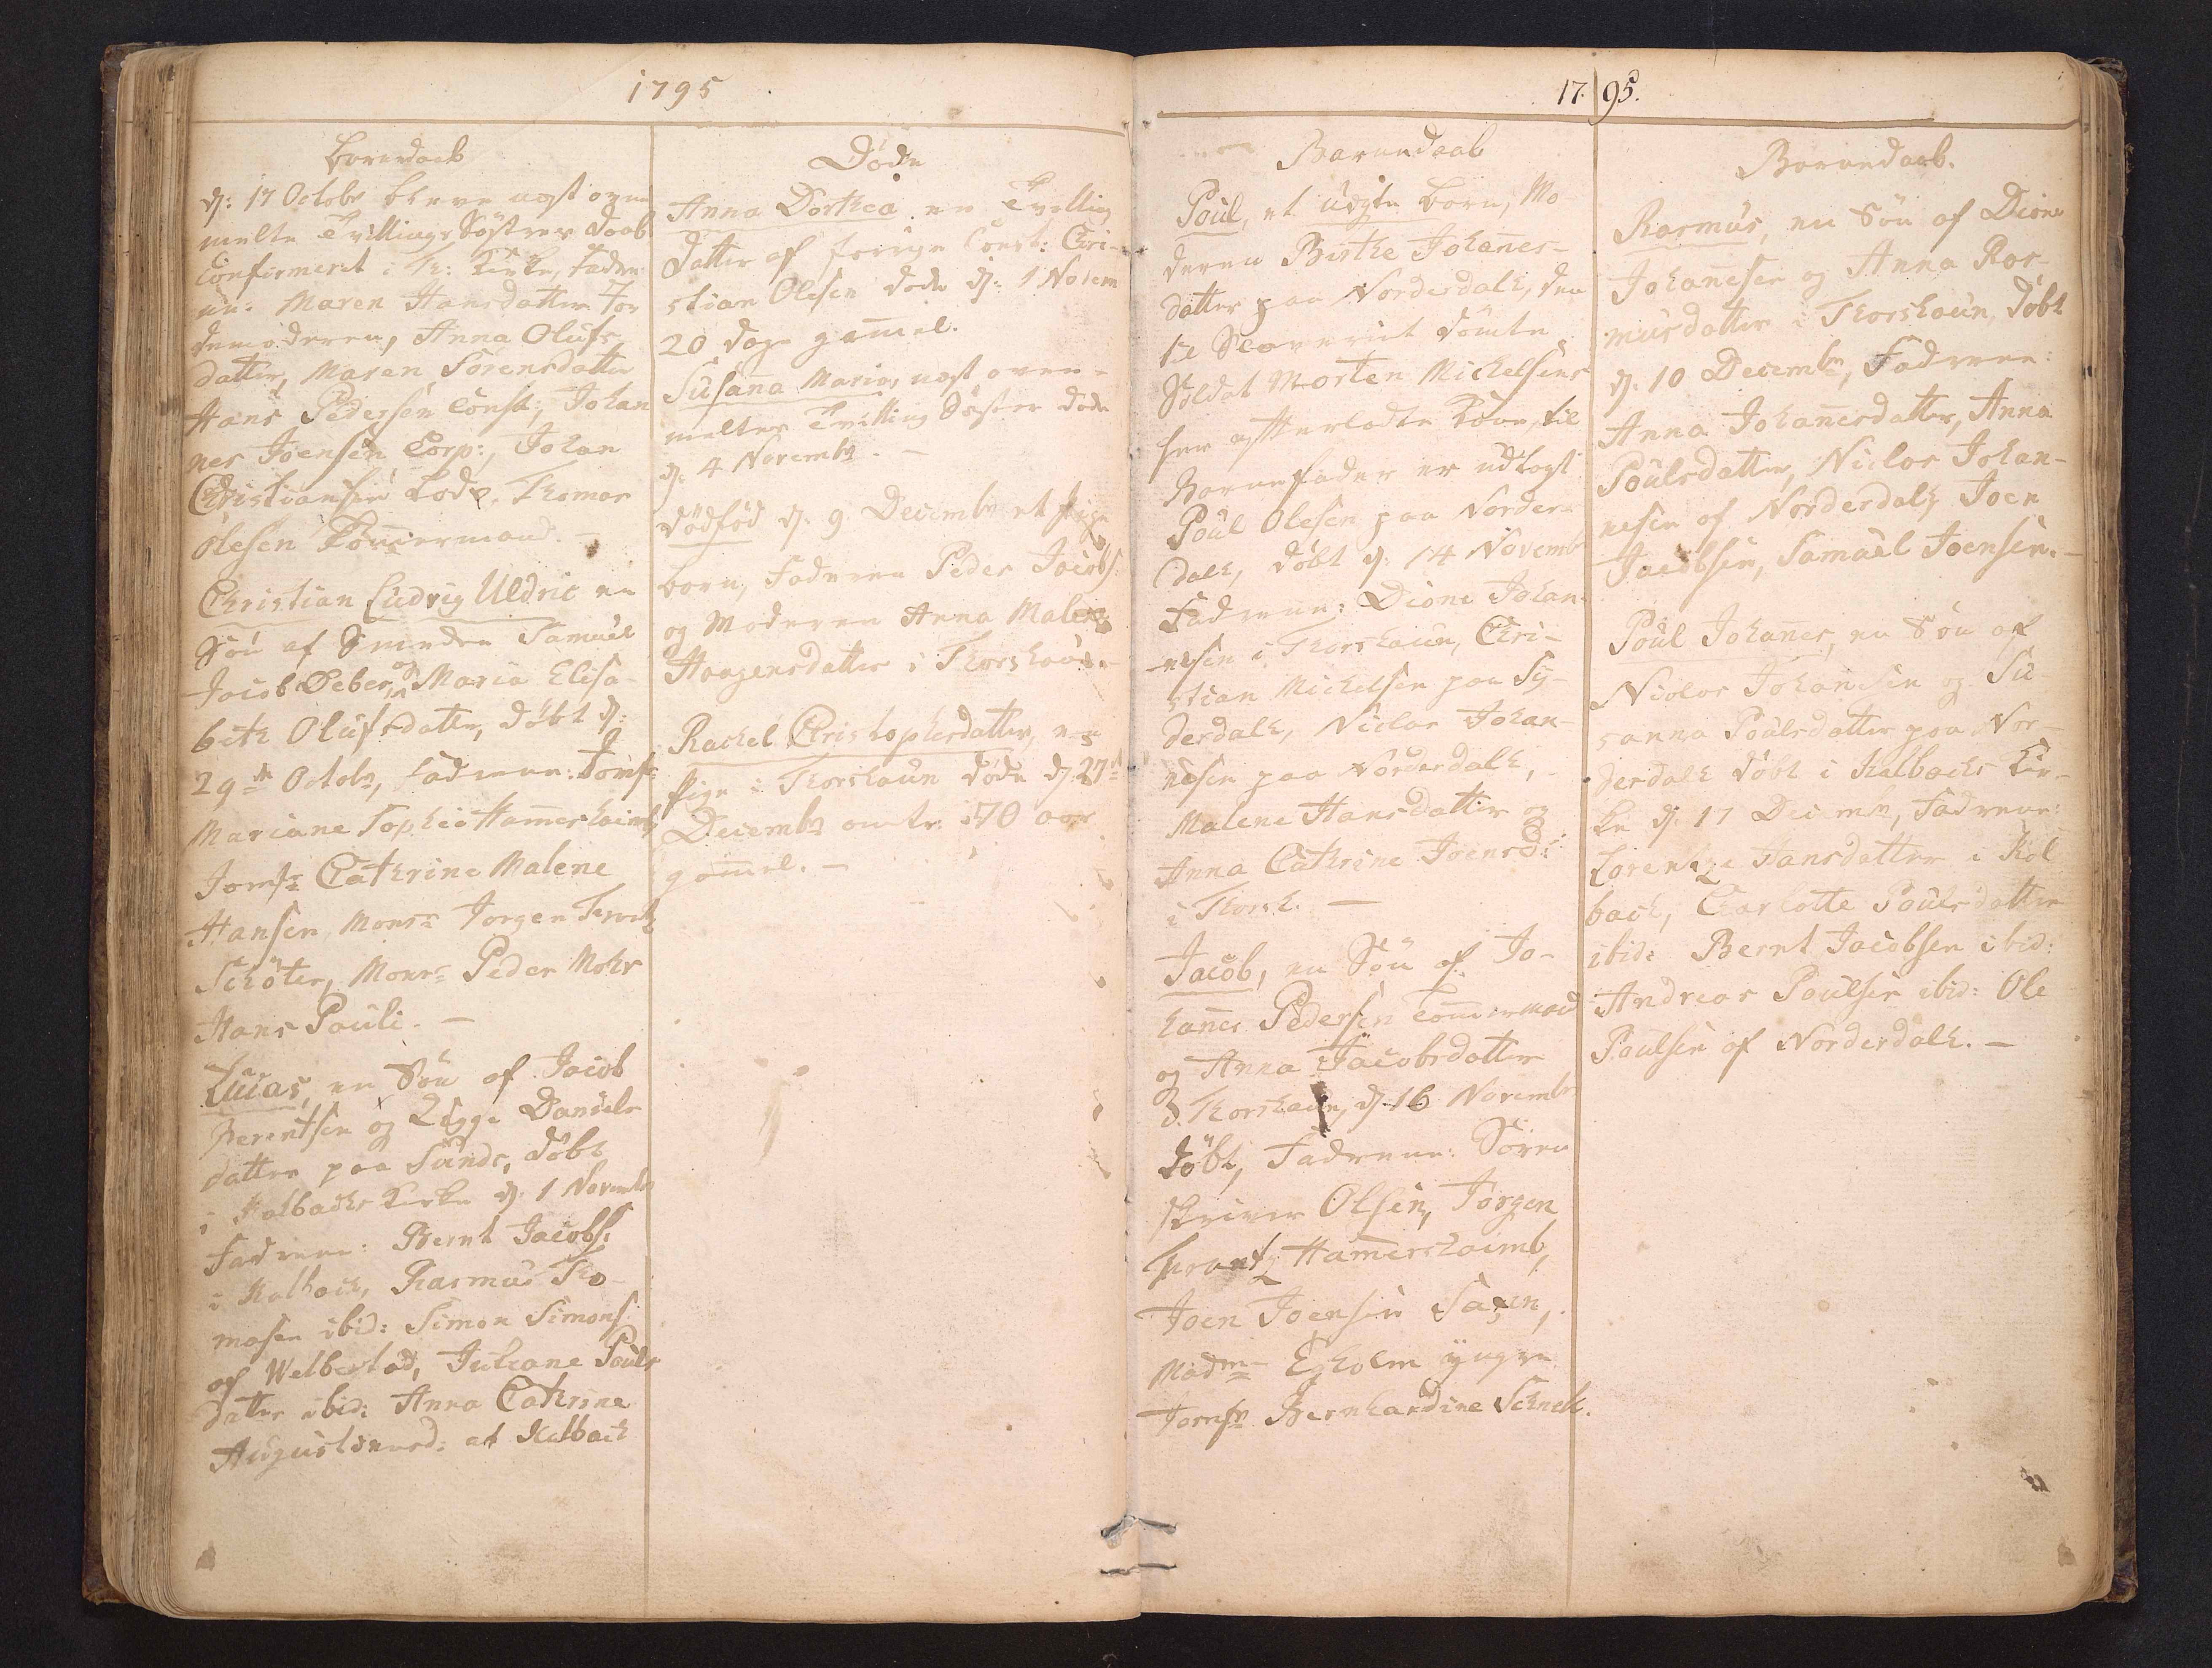 1795
Barnedaab
d: 17 Octobr bleve næst ovenmelte
Tvillings Söstres Daab
Confirmeret i Th: Kirke, Faddrene:
Maren Hansdatter Jordemoderen,
Anna Olufsdatter,
Maren Sörensdatter
Hans Pedersen Const:, Johannes
Joensen Corp:, Johan
Christiansen Lods, Thomas
Olesen Tömmermand. -
Christian Ludvig Uldric en
Sön af Smeden Samuel
Jacob Debes og Maria Elisabeth
Olufsdatter, döbt d:
29de Octobr, Faddrene: Jomfr
Mariane Sophia Hamershaimb,
Jomfr Cathrine Malene
Hansen, Monsr Jørgen Frantz
Schöter, Monsr Peder Mohr
Hans Pauli. -
Lucas, en Sön af Jacob
Berentsen og Zigge Danielsdatter
paa Sunds, döbt
i Kalbachs Kirke d: 1 Novembr
Faddrene: Bernt Jacobs:
i Kalbach, Rasmus Thomasen
ibid: Simon Simons:
af Welbestad, Juliane Poulsdatter
ibid: Anna Cathrine
Augustinusd: af Kalbach
Döde
Anna Dorthea en Tvilling
Datter af forrige Const: Christian
Olesen döde d: 1 Novem
20 Dage gam̄el.
Susan̄a Maria, næst ovenmeltes
Tvilling Söster döde
d: 4 Novembr. -
Dödföd d: 9 Decembr et Pige
barn, Faderen Peder Jacobs:
og Moderen Anna Malena
Haagensdatter i Thorshavn. -
Rachel Christophersdatter, en
Pige i Thorshaun döde d: 27de
Decembr omtr: 70 aar
gam̄el. -
17.95.
Barnedaab
Poul, et uægte Barn, Moderen
Birthe Johannesdatter
paa Norderdalh, den
til Slaveriet dömte
Soldat Morten Michelsens
her efterladte Kone, til
Barnefader er udlagt
Poul Olesen paa Norderdalh,
döbt d: 14 Novemb
Faddrene: Dione Johannesen
i Thorshaun, Christian
Michelsen paa Syderdalh,
Niclas Johannesen
paa Norderdalh,
Malene Hansdatter og
Anna Cathrine Joensd:
i Thorsh. -
Jacob, en Sön af Johannes
Pedersen Tömmermand
og Anna Jacobsdatter
i Thorshaun, d: 16 Novembr
döbt, Faddrene: Sören
skriver Olsen, Jörgen
Frantz Hamershaimb,
Joen Joensen Saxen,
Madme Egholm yngre
Jomfr Bernhardine Schnell.
Barnedaab.
Rasmus, en Sön af Dione
Johannesen og Anna Rasmusdatter
i Thorshaun, döbt
d: 10 Decembr, Faddrene:
Anna Johan̄esdatter, Anna
Poulsdatter, Niclas Johannesen
af Norderdalh, Joen
Jacobsen, Samuel Joensen. -
Poul Johan̄es, en Sön af
Niclas Johannesen og Susanna
Poulsdatter paa Norderdalh
döbt i Kalbachs Kirke
d: 17 Decembr, Faddrene:
Lorentze Hansdatter i Kalbach,
Charlotte Poulsdatter
ibid: Bernt Jacobsen ibid:
Andreas Poulsen ibid: Ole
Poulsen af Norderdalh. -